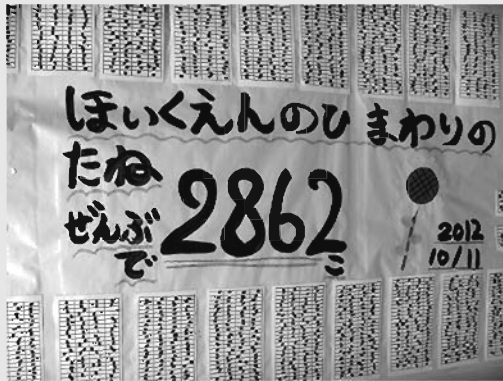 ほいくえんのひまわりの
たね
ぜんぶ
で
2862こ
2012
10/11